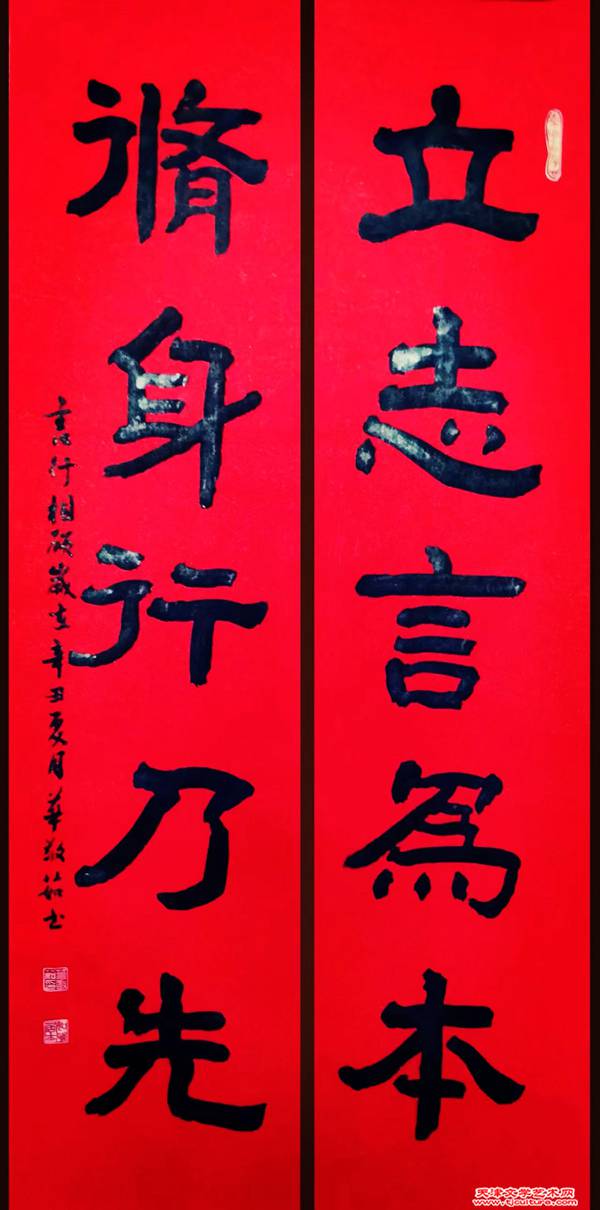 立志言為本
脩身行乃先
言行相顾歲在辛丑夏月華敬茹书
天津文学艺术网
www.tjculture.com